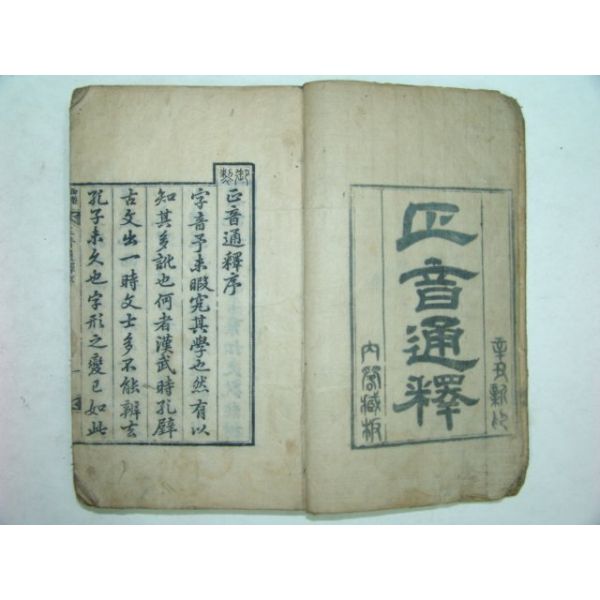 辛丑新印
正音通釋
內閣藏板
御製
正音通釋序
字音予未暇究其學也然有以
知其多訛也何者漢武時孔壁
古文出一時文士多不能辨玄
孔子未久也字形之變已如此